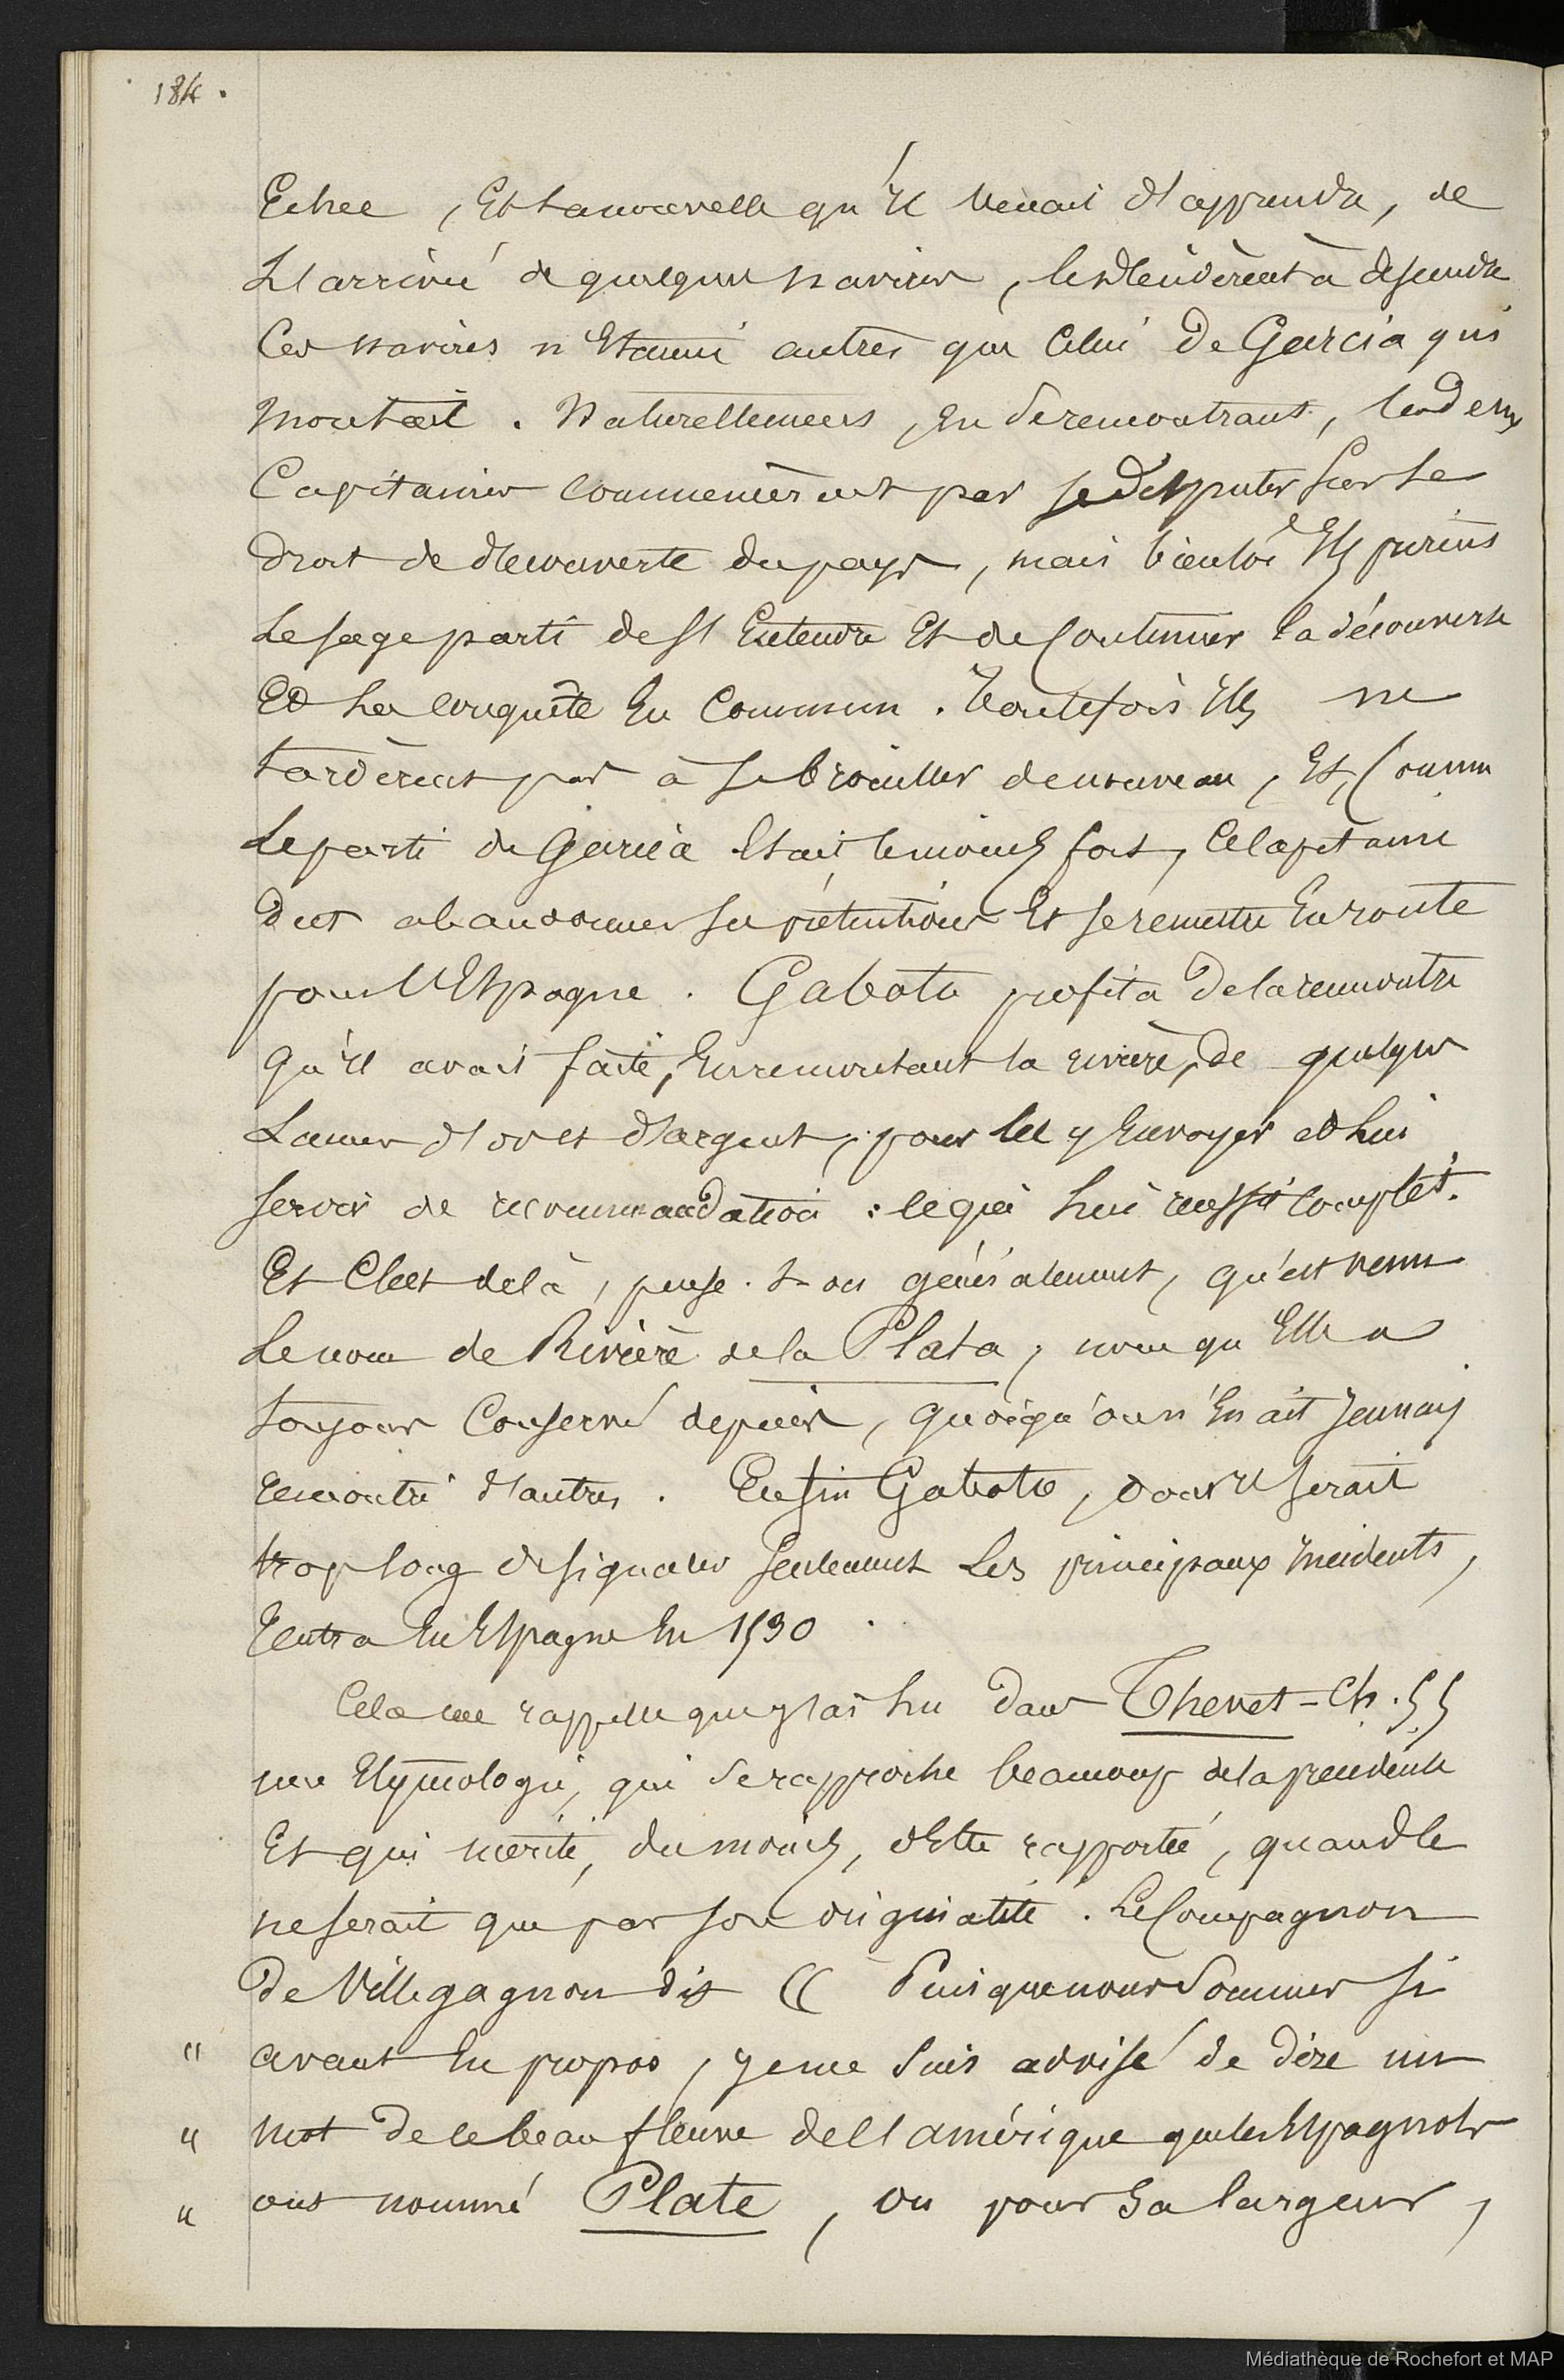 184.
Echec, Et la nouvelle qu'Il venait d'apprendre, de
L'arrivée de quelques navires, les décidèrent à descendre
Ces navires n'Etaient autres que Celui de Garcia qui
montait. Naturellement, En se rencontrant, les deux
Capitaines commencèrent par se disputer sur le
droit de découverte du pays, mais bientôt Ils prirent
Le sage parti de s'Entendre Et de Continuer la découverte
Et La conquête En Commun. Toutefois Ils ne
tardèrent pas à se brouiller de nouveau, Et, Comme
Le parti de Garcia Etait le moins fort, Ce Capitaine
dut abandonner ses prétentions Et se remettre En route
pour l'Espagne. Gaboto profita de la rencontre
qu'Il avait faite, En remontant la rivière, de quelques
Lames d'or et d'argent, pour les y Envoyer et lui
servir de recommandation : ce qui lui réussit complèt.
Et C'est de là, pense-t-on généralement, qu'est venu
Le nom de Rivière de la Plata, nom qu'Elle a
toujours Conservé depuis, quoiqu'on n'En ait Jamais
rencontré d'autres. Enfin Gaboto, dont Il serait
trop long de signaler seulement Les principaux Incidents,
rentra En Espagne En 1530.
Cela me rappelle que j'ai lu dans Thevet - Ch. 55
une Etymologie, qui se rapproche beaucoup de la précédente
Et qui mérite, du moins, d'Etre rapportée, quand Ce
ne serait que par son originalité. Le Compagnon
de Villegagnon dit (( Puisque nous Sommes si
" avant En propos, je me suis advisé de dire un
" mot de ce beau fleuve de l'amérique que les Espagnols
" ont nommé Plate, ou pour sa largeur,
Médiathèque de Rochefort et MAP